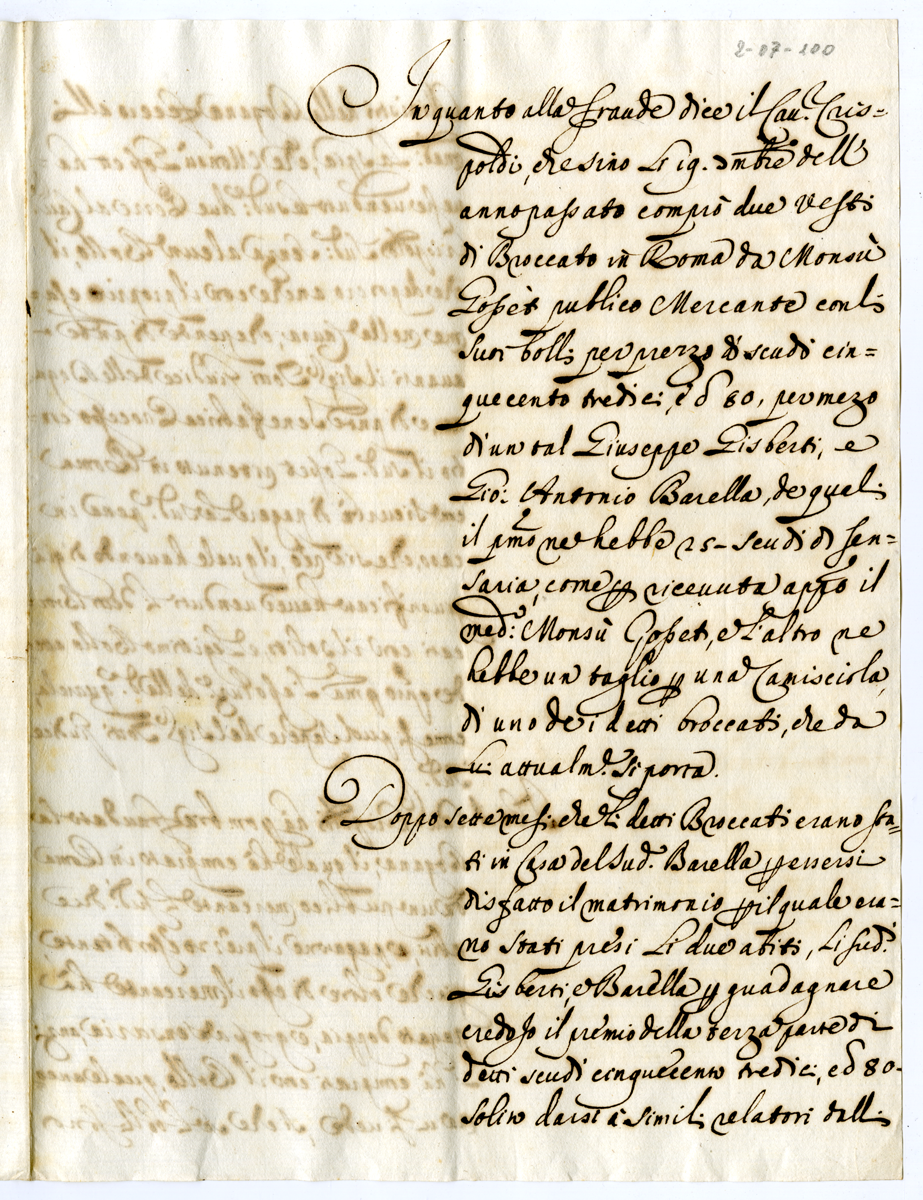 2-07-100
In quanto alla fraude dice il Cau.r Cris=
poldi, che sino li 19. Xmbre dell'
anno passato comprò due Vesti
di Broccato in Roma da Monsù
Gosset publico Mercante con li
suoi bolli per prezzo di scudi cin=
quecento tredici, e d 80, per mezo
di un tal Giuseppe Gisberti, e
Gio: Antonio Barella, de quali
il pmo ne hebbe 25 - scudi di sen=
saria, come p ricevuta appo il
med.o Monsù Gosset, e l'altro ne
hebbe un taglio p una Camisciola
di uno de i detti broccati, che da
lui attualm.e si porta.
Doppo sette mesi che li detti Broccati erano sta=
ti in Casa del sud.o Barella p essersi
disfatto il matrimonio p il quale era=
no stati presi li due abiti, li sud.i
Gisberti, e Barella p guadagnare
credo Io il premio della terza parte di
detti scudi cinquecento tredici, e d 80-
solito darsi à simili relatori dalli